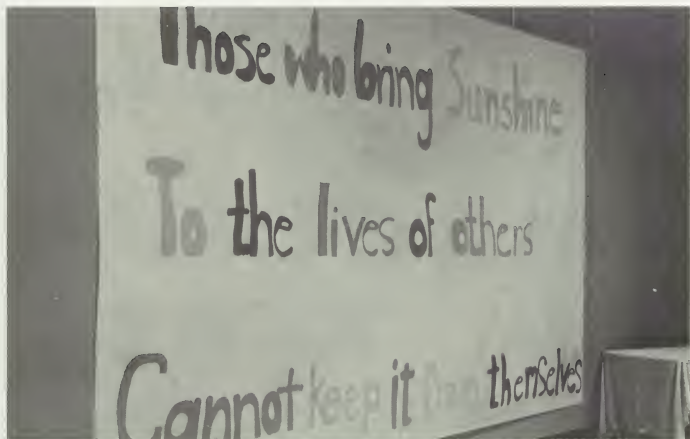 Those who bring Sunshine
To the lives of others
Cannot keep it from themselves